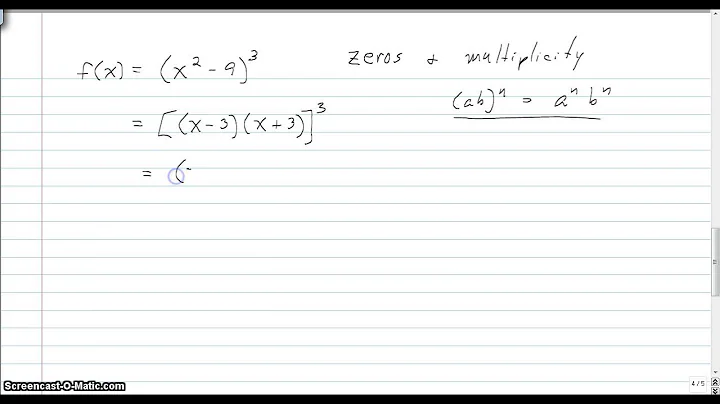 f(x) = (x² - 9)³ zeros + multiplicity
(ab)ⁿ = aⁿ bⁿ
= [(x-3)(x+3)]³
= (
4 / 5
Screencast-O-Matic.com